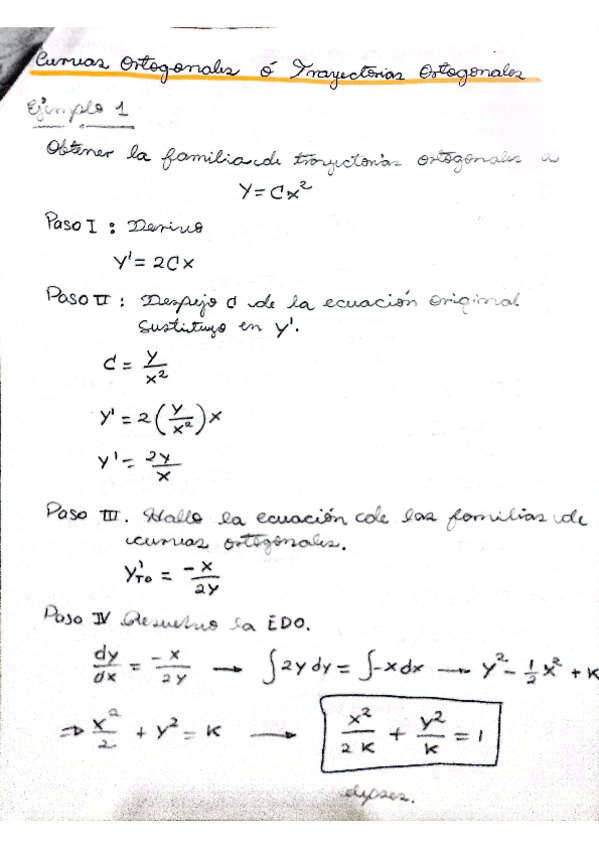 Curvas Ortogonales ó Trayectorias Ortogonales
Ejemplo 1
Obtener la familia de trayectorias ortogonales a
Y = Cx²
Paso I : Derivo
Y' = 2Cx
Paso II : Despejo C de la ecuación original
Sustituyo en Y'.
C = Y/x²
Y' = 2(Y/x²)x
Y' = 2Y/x
Paso III. Hallo la ecuación de las familias de
curvas ortogonales.
Y'TO = -x/2Y
Paso IV Resuelvo la EDO.
dy/dx = -x/2Y → ∫2Y dy = ∫-x dx → Y² - ½x² + K
⇒ x²/2 + Y² = K → x²/2K + Y²/K = 1
elipses.